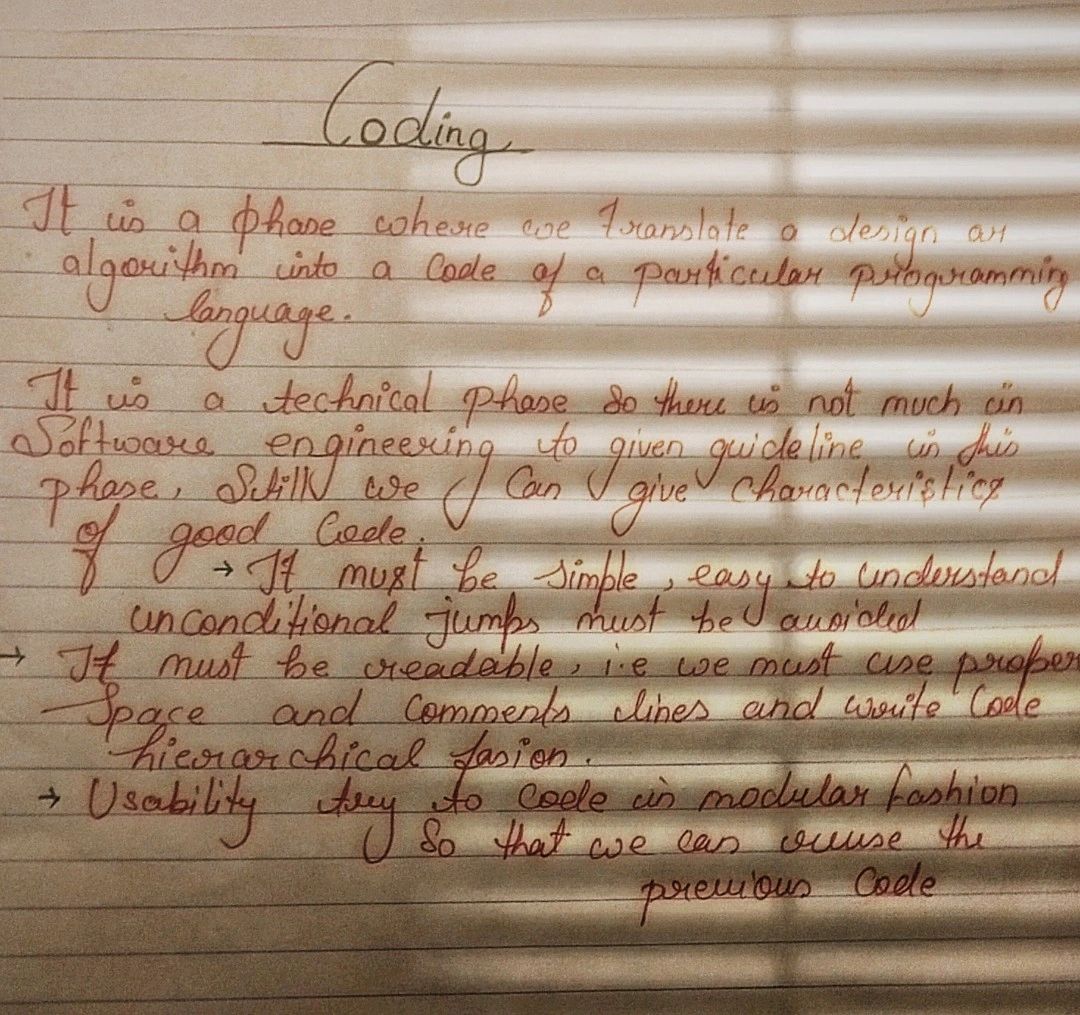 Coding
It is a phase where we translate a design an
algorithm into a Code of a particular programming
language.
It is a technical phase so there is not much in
Software engineering to given guideline in this
phase, Still we Can give characteristics
of good Code.
→ It must be simple, easy to understand
unconditional jumps must be avoided
→ It must be readable, i.e we must use proper
Space and Comments lines and write Code
hierarchical fasion.
→ Usability try to Code in modular fashion
So that we can reuse the
previous Code